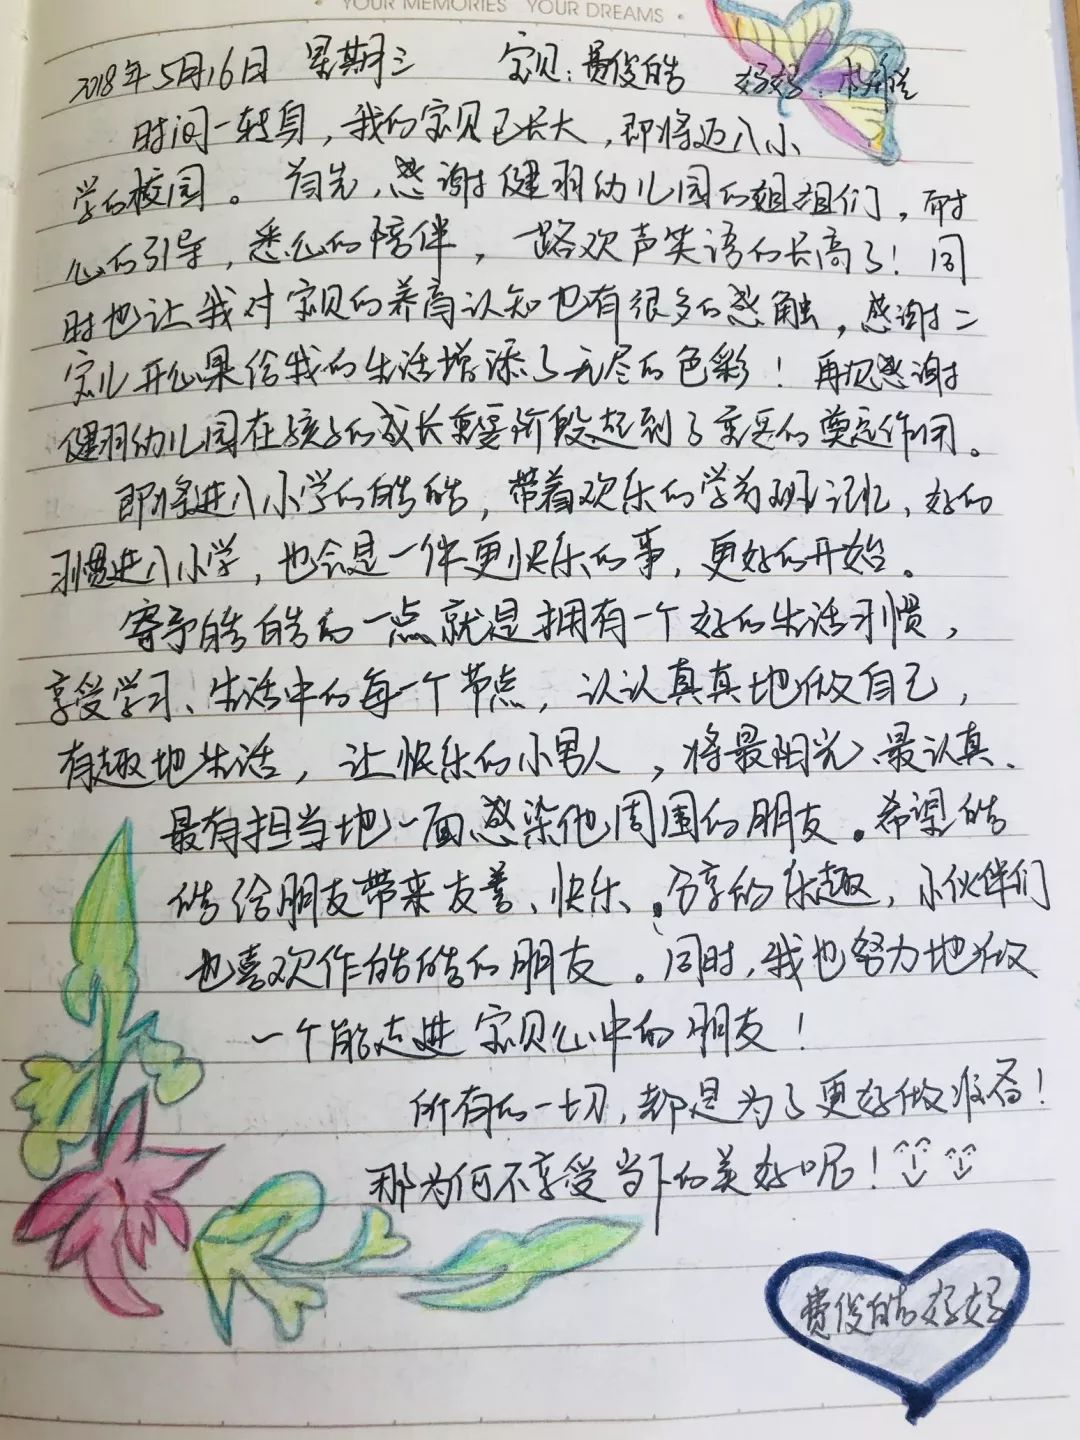 YOUR MEMORIES YOUR DREAMS
2018年5月16日 星期三 宝贝:费俊皓 好妈:
时间一转身,我的宝贝已长大,即将迈入小
学的校园。首先,感谢健羽幼儿园的姐姐们,耐
心的引导,悉心的陪伴,一路欢声笑语的长高了!同
时也让我对宝贝的养育认知也有很多的感触,感谢二
宝儿开心果给我的生活增添了无尽的色彩!再次感谢
健羽幼儿园在孩子的成长重要阶段起到了重要的奠定作用。
即将进入小学的皓皓,带着欢乐的学前班记忆、好的
习惯进入小学,也会是一件更快乐的事,更好的开始。
寄予皓皓的一点就是拥有一个好的生活习惯,
享受学习、生活中的每一个节点,认认真真地做自己,
有趣地生活,让快乐的小男人,将最阳光、最认真、
最有担当地一面感染他周围的朋友。希望皓
皓给朋友带来友善、快乐、分享的乐趣,小伙伴们
也喜欢作皓皓的朋友。同时,我也努力地做
一个能走进宝贝心中的朋友!
所有的一切,都是为了更好做准备!
那为何不享受当下的美好呢!
费俊皓好妈